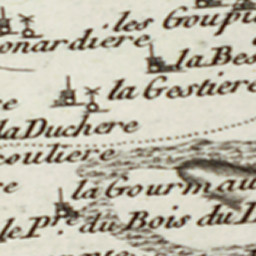 les Goupi
onardière
la Bes
la Gestiere
la Duchere
couliere
la Gourmau
le Pr. du Bois du